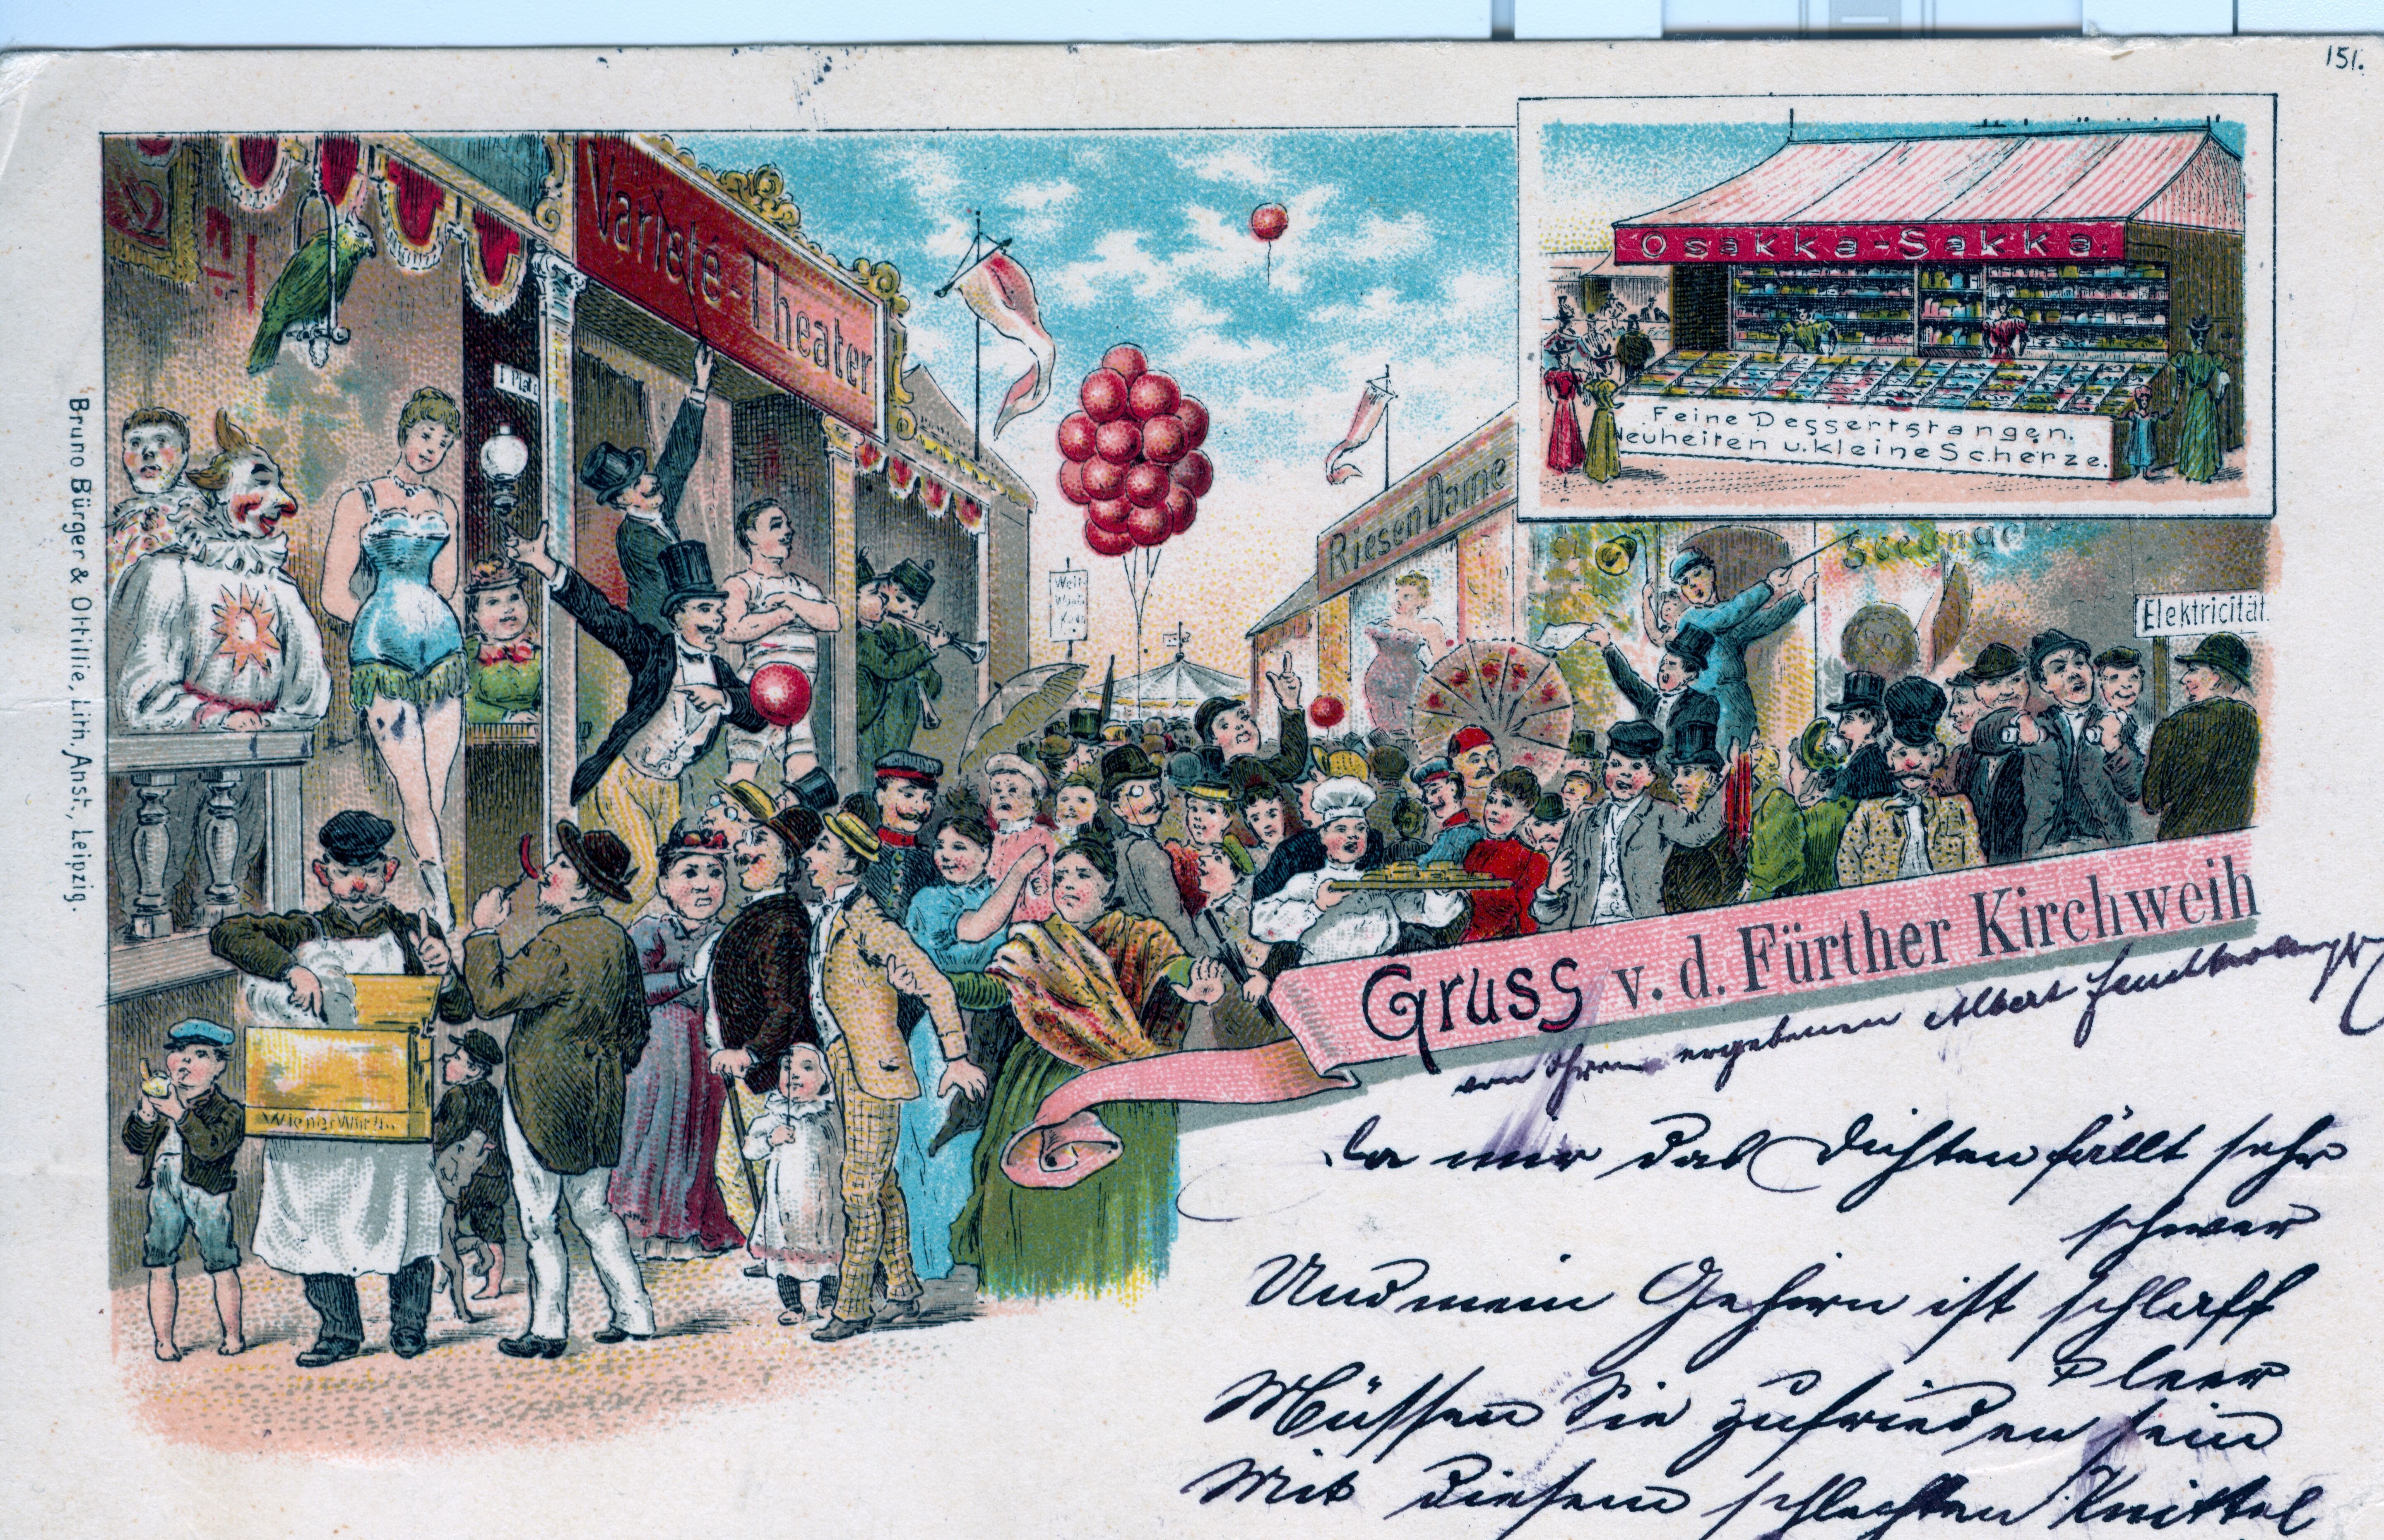 151.
Varieté-Theater
I Platz
Osakka-Sakka.
Feine Dessertstangen.
Neuheiten u. kleine Scherze.
Riesen Dame
Welt-
Elektricität
Wiener Würst
Bruno Bürger & Ottillie, Lith. Anst., Leipzig.
Gruss v. d. Further Kirchweih
von Ihrem ergebenen Albert
Da mir das Dichten fällt sehr
schwer
Und mein Gehirn ist schlaff
&leer
Müssen Sie zufrieden sein
Mit diesem schlechten Knittel